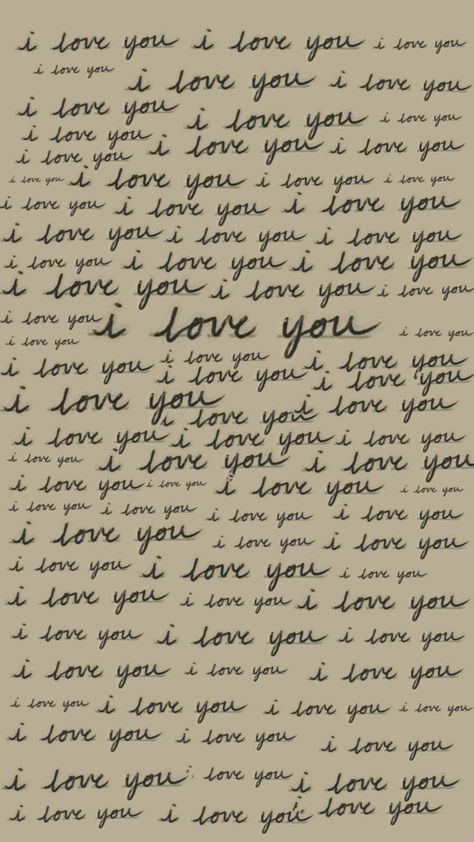 i love you i love you i love you
i love you
i love you i love you
i love you
i love you i love you
i love you
i love you i love you
i love you
i love you i love you i love you i love you
i love you i love you i love you
i love you i love you i love you
i love you i love you i love you
i love you i love you i love you
i love you i love you i love you
i love you
i love you i love you i love you
i love you i love you
i love you i love you i love you
i love you i love you i love you
i love you i love you i love you
i love you i love you i love you i love you
i love you i love you i love you i love you
i love you i love you i love you
i love you i love you i love you
i love you i love you i love you
i love you i love you i love you
i love you i love you i love you
i love you i love you i love you i love you
i love you i love you i love you
i love you i love you i love you
i love you i love you i love you